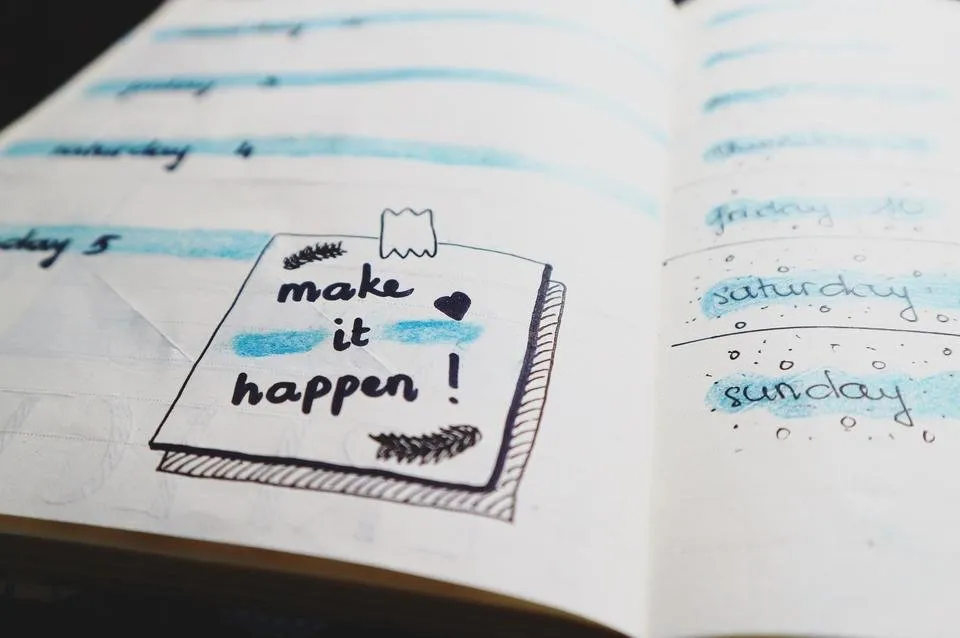 friday 3
saturday 4
day 5
make
it
happen !
friday
saturday
sunday